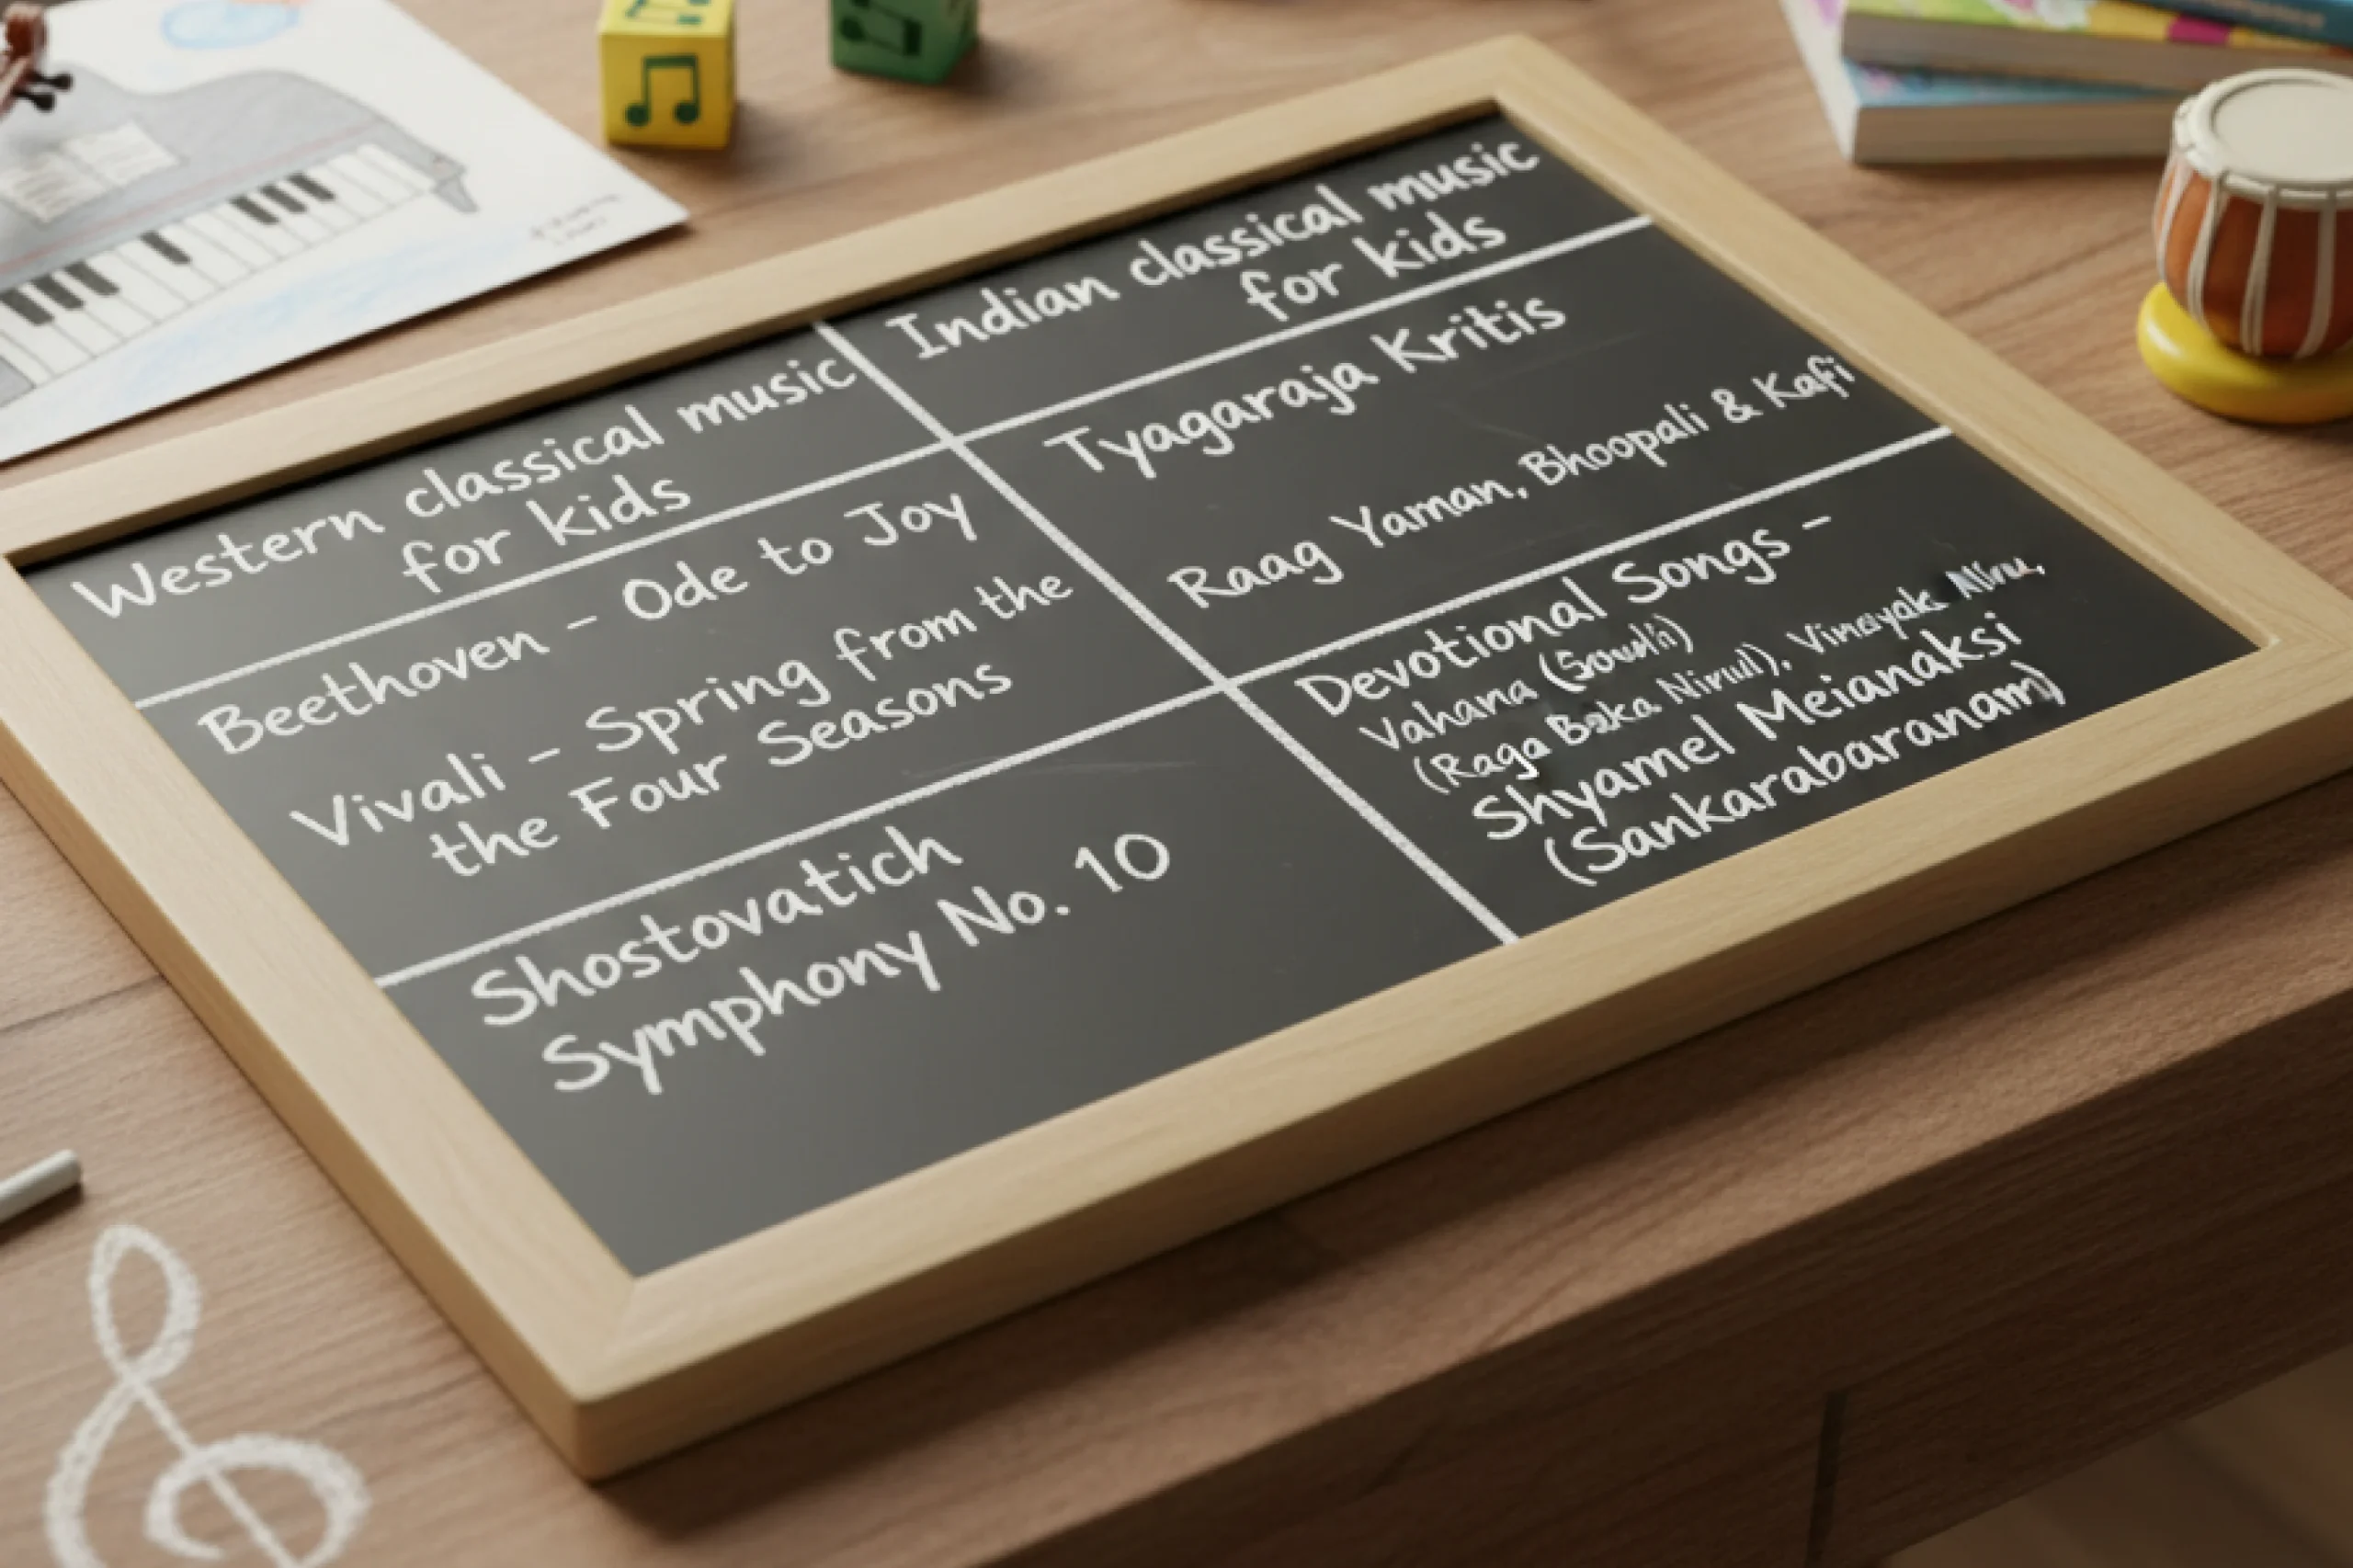 Western classical music
for kids
Indian classical music
for kids
Beethoven - Ode to Joy
Vivali - Spring from the
the Four Seasons
Tyagaraja Kritis
Raag Yaman, Bhoopali & Kafi
Shostovatich
Symphony No. 10
Devotional Songs -
Vahana
(Raga
Shyamel Meianaksi
(Sankarabaranam)